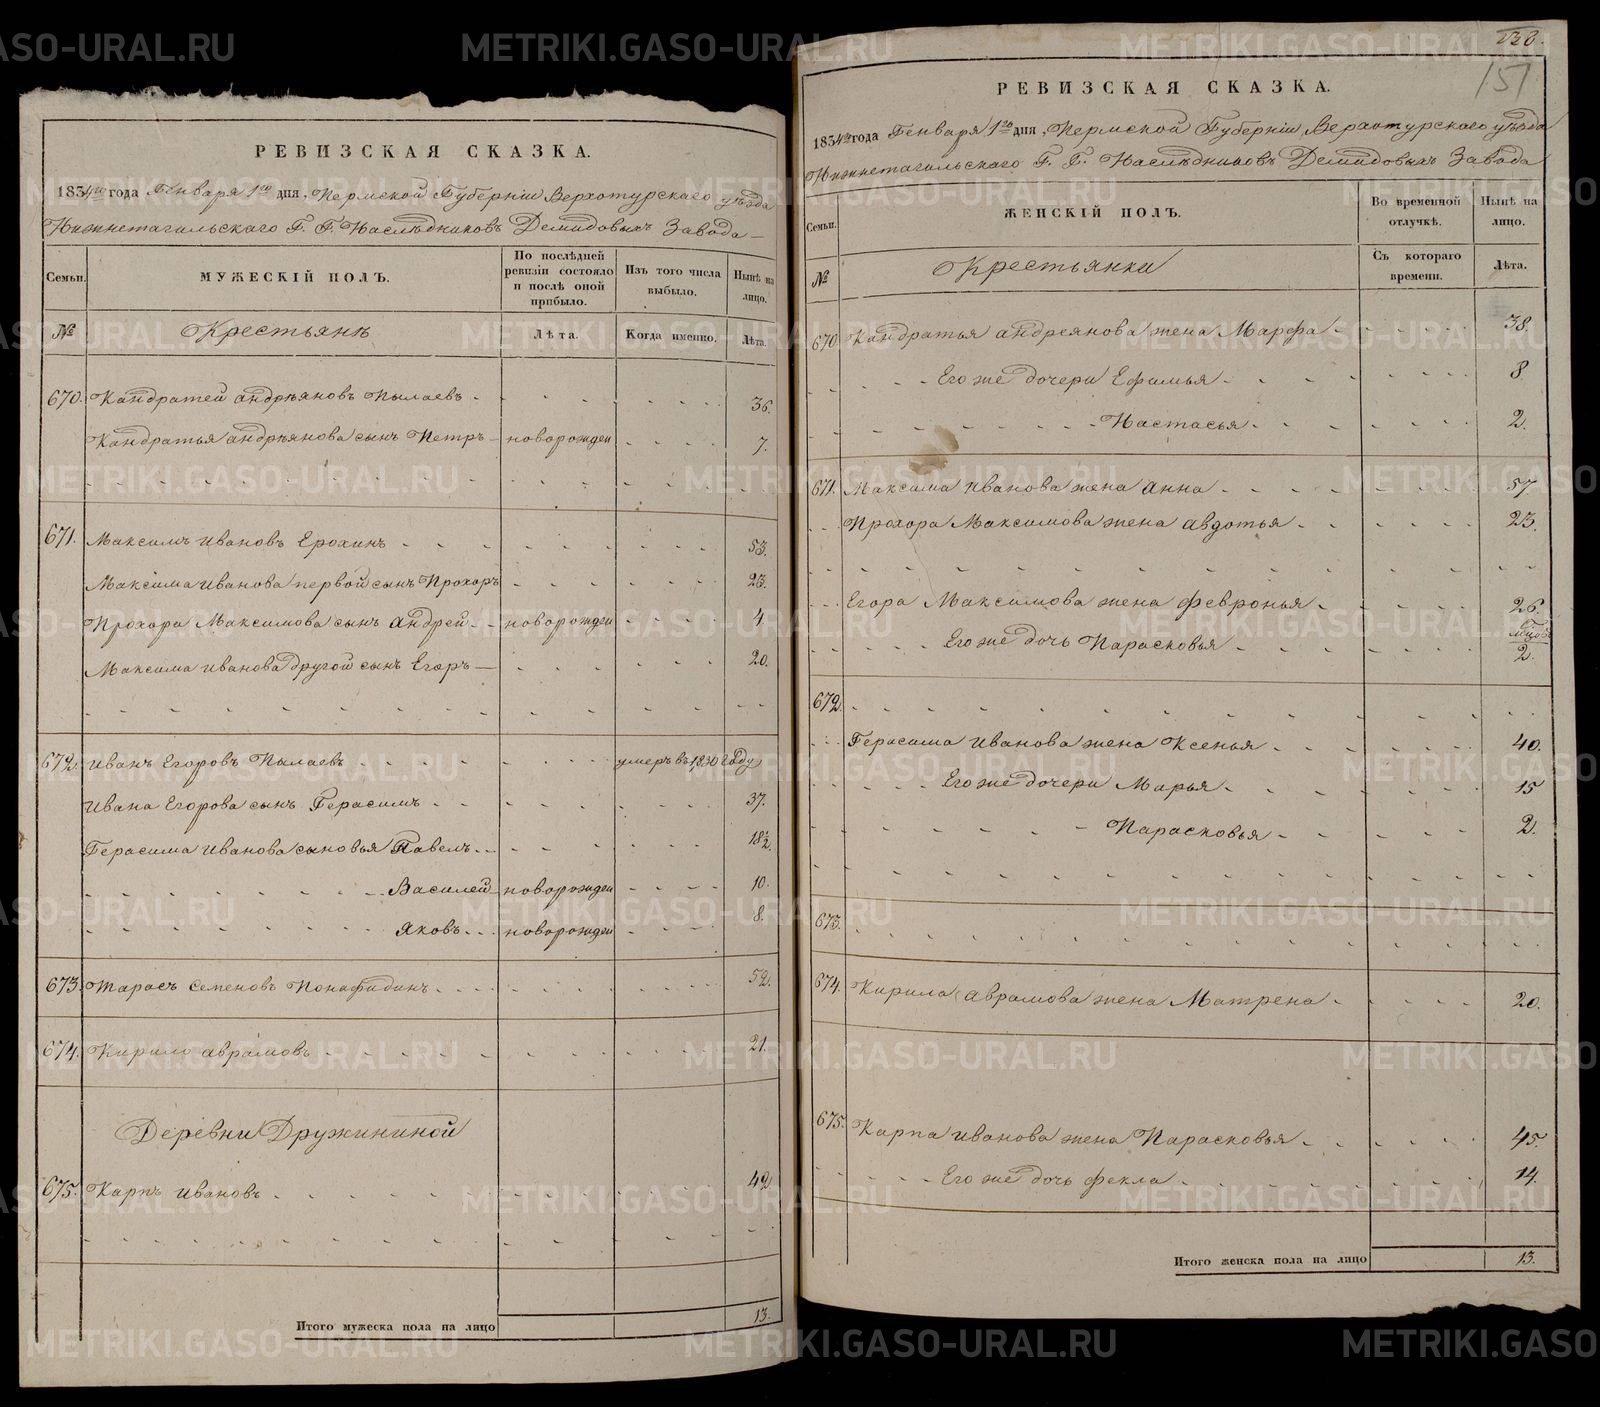 РЕВИЗСКАЯ СКАЗКА.
1834го года Генваря 1го дня, Пермской Губерніи Верхотурскаго уѣзда
Нижнетагильскаго Г. Г. Наслѣдниковъ Демидовыхъ Завода
Семьи. МУЖЕСКІЙ ПОЛЪ. По послѣдней ревизіи состояло и послѣ оной прибыло. Изъ того числа выбыло. Нынѣ на лицо.
№ Крестьянѣ Лѣта. Когда именно. Лѣта.
670. Кандратей андрѣяновъ Пылаевъ 36.
Кандратья андрѣянова сынъ Петръ новорожден 7.
671. Максимъ ивановъ Ерохинъ 53.
Максима иванова первой сынъ Прохоръ 23.
Прохора Максимова сынъ андрей новорожден 4
Максима иванова другой сынъ Егоръ 20.
672. иванъ Егоровъ Пылаевъ умеръ въ 1830 году
ивана Егорова сынъ Герасимъ 37.
Герасима иванова сыновья Павелъ 18½.
Василей новорожден 10.
яковъ новорожден 8.
673. Тарасъ Семеновъ Понафидинъ 52.
674. Кирило аврамовъ 21.
Деревни Дружининой
675. Карпъ ивановъ 42
Итого мужеска пола на лицо 13.
138.
151
РЕВИЗСКАЯ СКАЗКА.
1834го года Генваря 1го дня, Пермской Губерніи Верхотурскаго уѣзда
Нижнетагильскаго Г. Г. Наслѣдниковъ Демидовыхъ Завода
Семьи. ЖЕНСКІЙ ПОЛЪ. Во временной отлучкѣ. Нынѣ на лицо.
№ Крестьянки Съ котораго времени. Лѣта.
670. Кандратья андреянова жена Марфа 38.
Его же дочери Ефимья 8
Настасья 2.
671. Максима иванова жена анна 57
Прохора Максимова жена авдотья 23.
Егора Максимова жена февронья 26.
Его же дочь Парасковья 2.
672.
Герасима иванова жена Ксенья 40.
Его же дочери Марья 15
Парасковья 2.
673.
674. Кирила аврамова жена Матрена 20.
675. Карпа иванова жена Парасковья 45.
Его же дочь фекла 14.
Итого женска пола на лицо 13.
METRIKI.GASO-URAL.RU